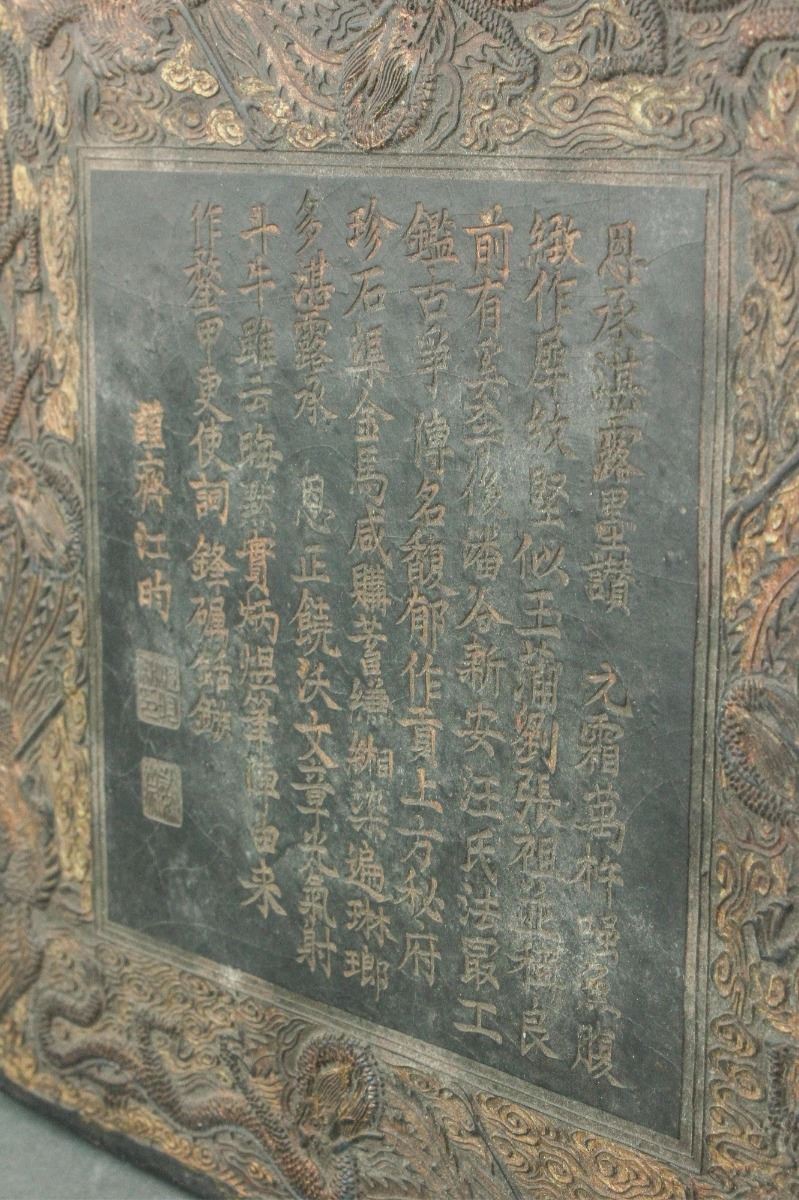 恩承湛露墨讃 元霜萬杵腹
緻作犀紋堅似玉蒲劉張祖並稱良
前有奚至後潘谷新安汪氏法最工
鑑古爭傳名馥郁作貢上方秘府
珍石渠金馬咸購蓄縹緗染遍琳瑯
多湛露承 恩正饒沃文章光氣射
斗牛雖云晦黙實炳煜筆陣由来
作鍪甲更使詞鋒礪銛鏃
蘁齊江昀